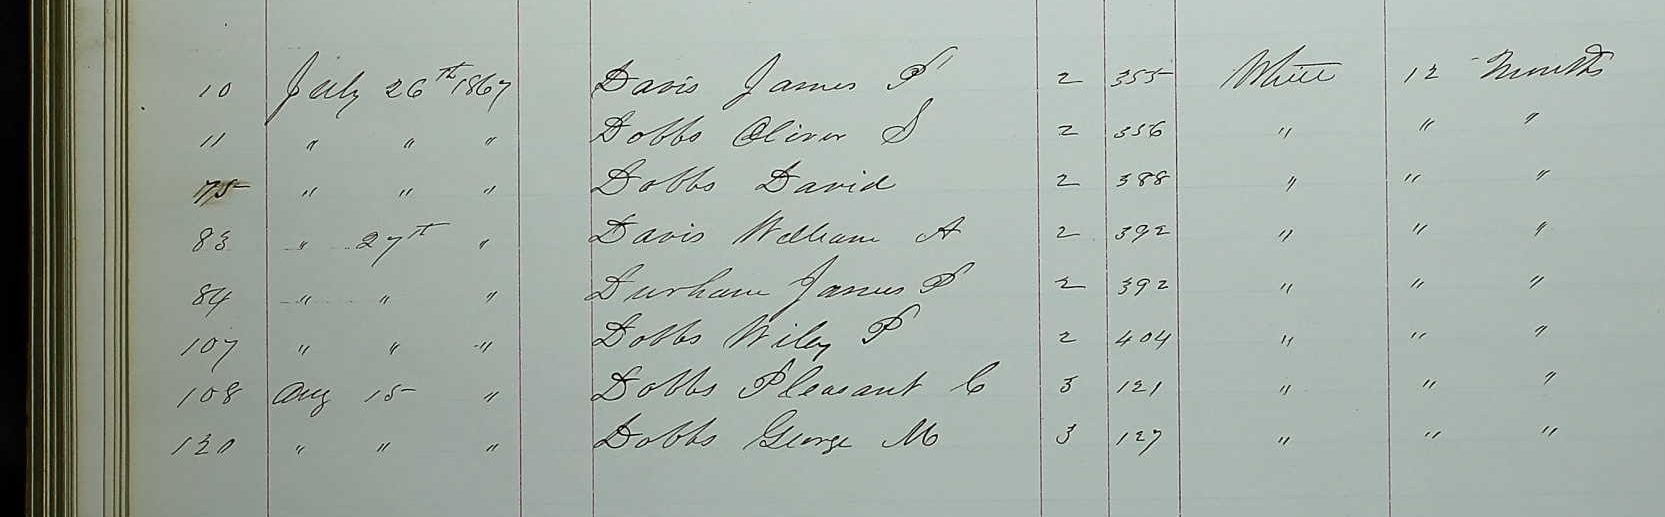 10 July 26th 1867 Davis James P 2 355 White 12 Months
11 " " " Dobbs Oliver S 2 356 " " "
75 " " " Dobbs David 2 388 " " "
83 " 27th " Davis William A 2 392 " " "
84 " " " Durham James P 2 392 " " "
107 " " " Dobbs Wiley P 2 404 " " "
108 Aug 15 " Dobbs Pleasant C 3 121 " " "
120 " " " Dobbs George M 3 127 " " "